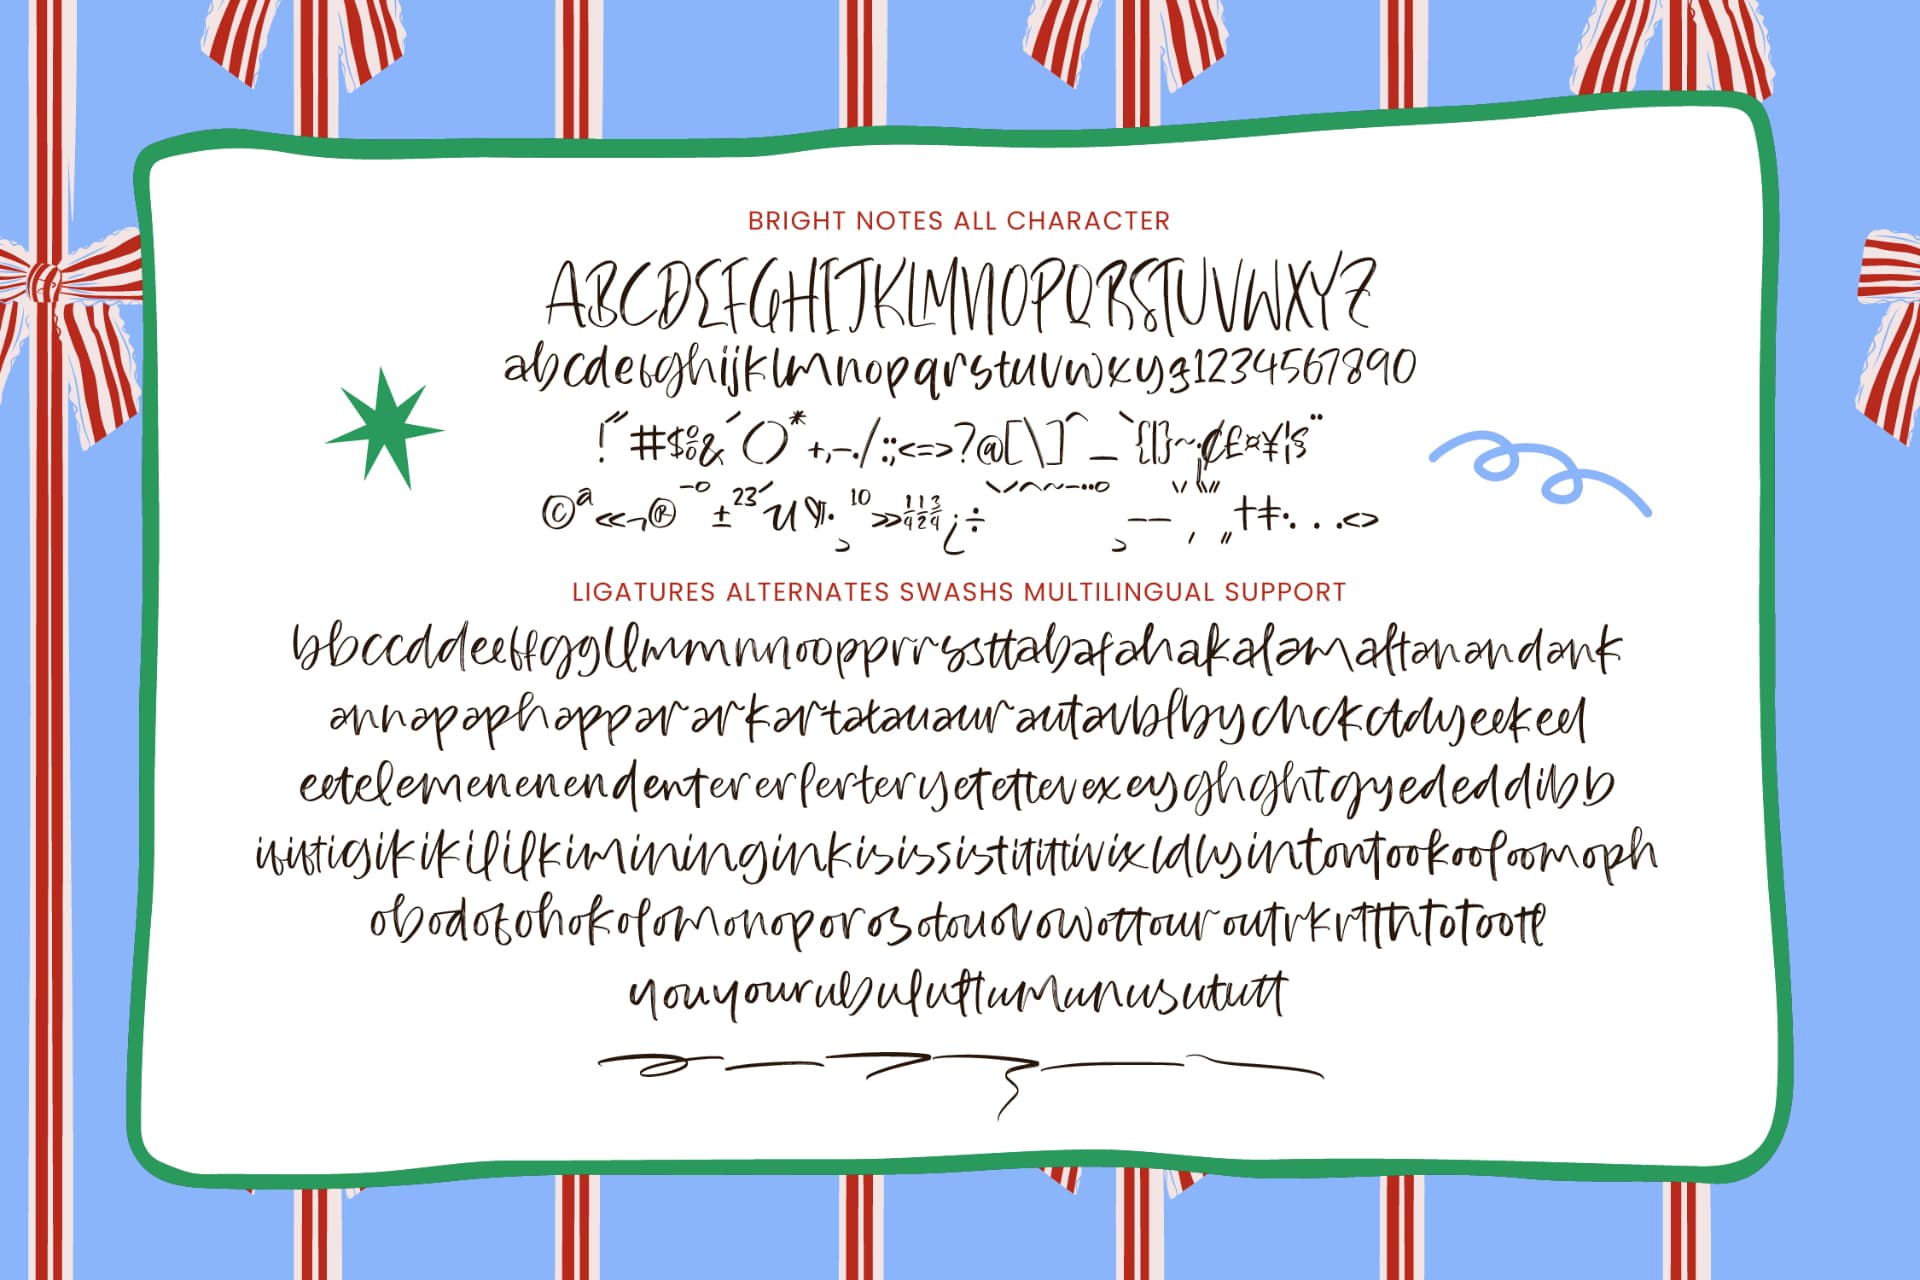 BRIGHT NOTES ALL CHARACTER
ABCDEFGHIJKLMNOPQRSTUVWXYZ
abcdefghijklmnopqrstuvwxyz1234567890
!"#$%&'()*+,-./:;<=>?@[\]^_`{|}~¡¢£¤¥¦§¨
©ª«¬®¯°±²³´µ¶·¸¹º»¼½¾¿÷
LIGATURES ALTERNATES SWASHS MULTILINGUAL SUPPORT
bbccddeeffggllmmnnoopprrssttabafahakalamaltanandank
annapaphappararkartatauaurautavblbychckctdyeekeel
eetelemenenendenterererlerteryetettevexeyghghtgyededdibb
ififtigikikililkimininginkisissistititttivixldlyintontookooloomoph
obodofohokolomonoporosotouovowottouroutrkrtthtotoottl
youyourubulultumunusututt